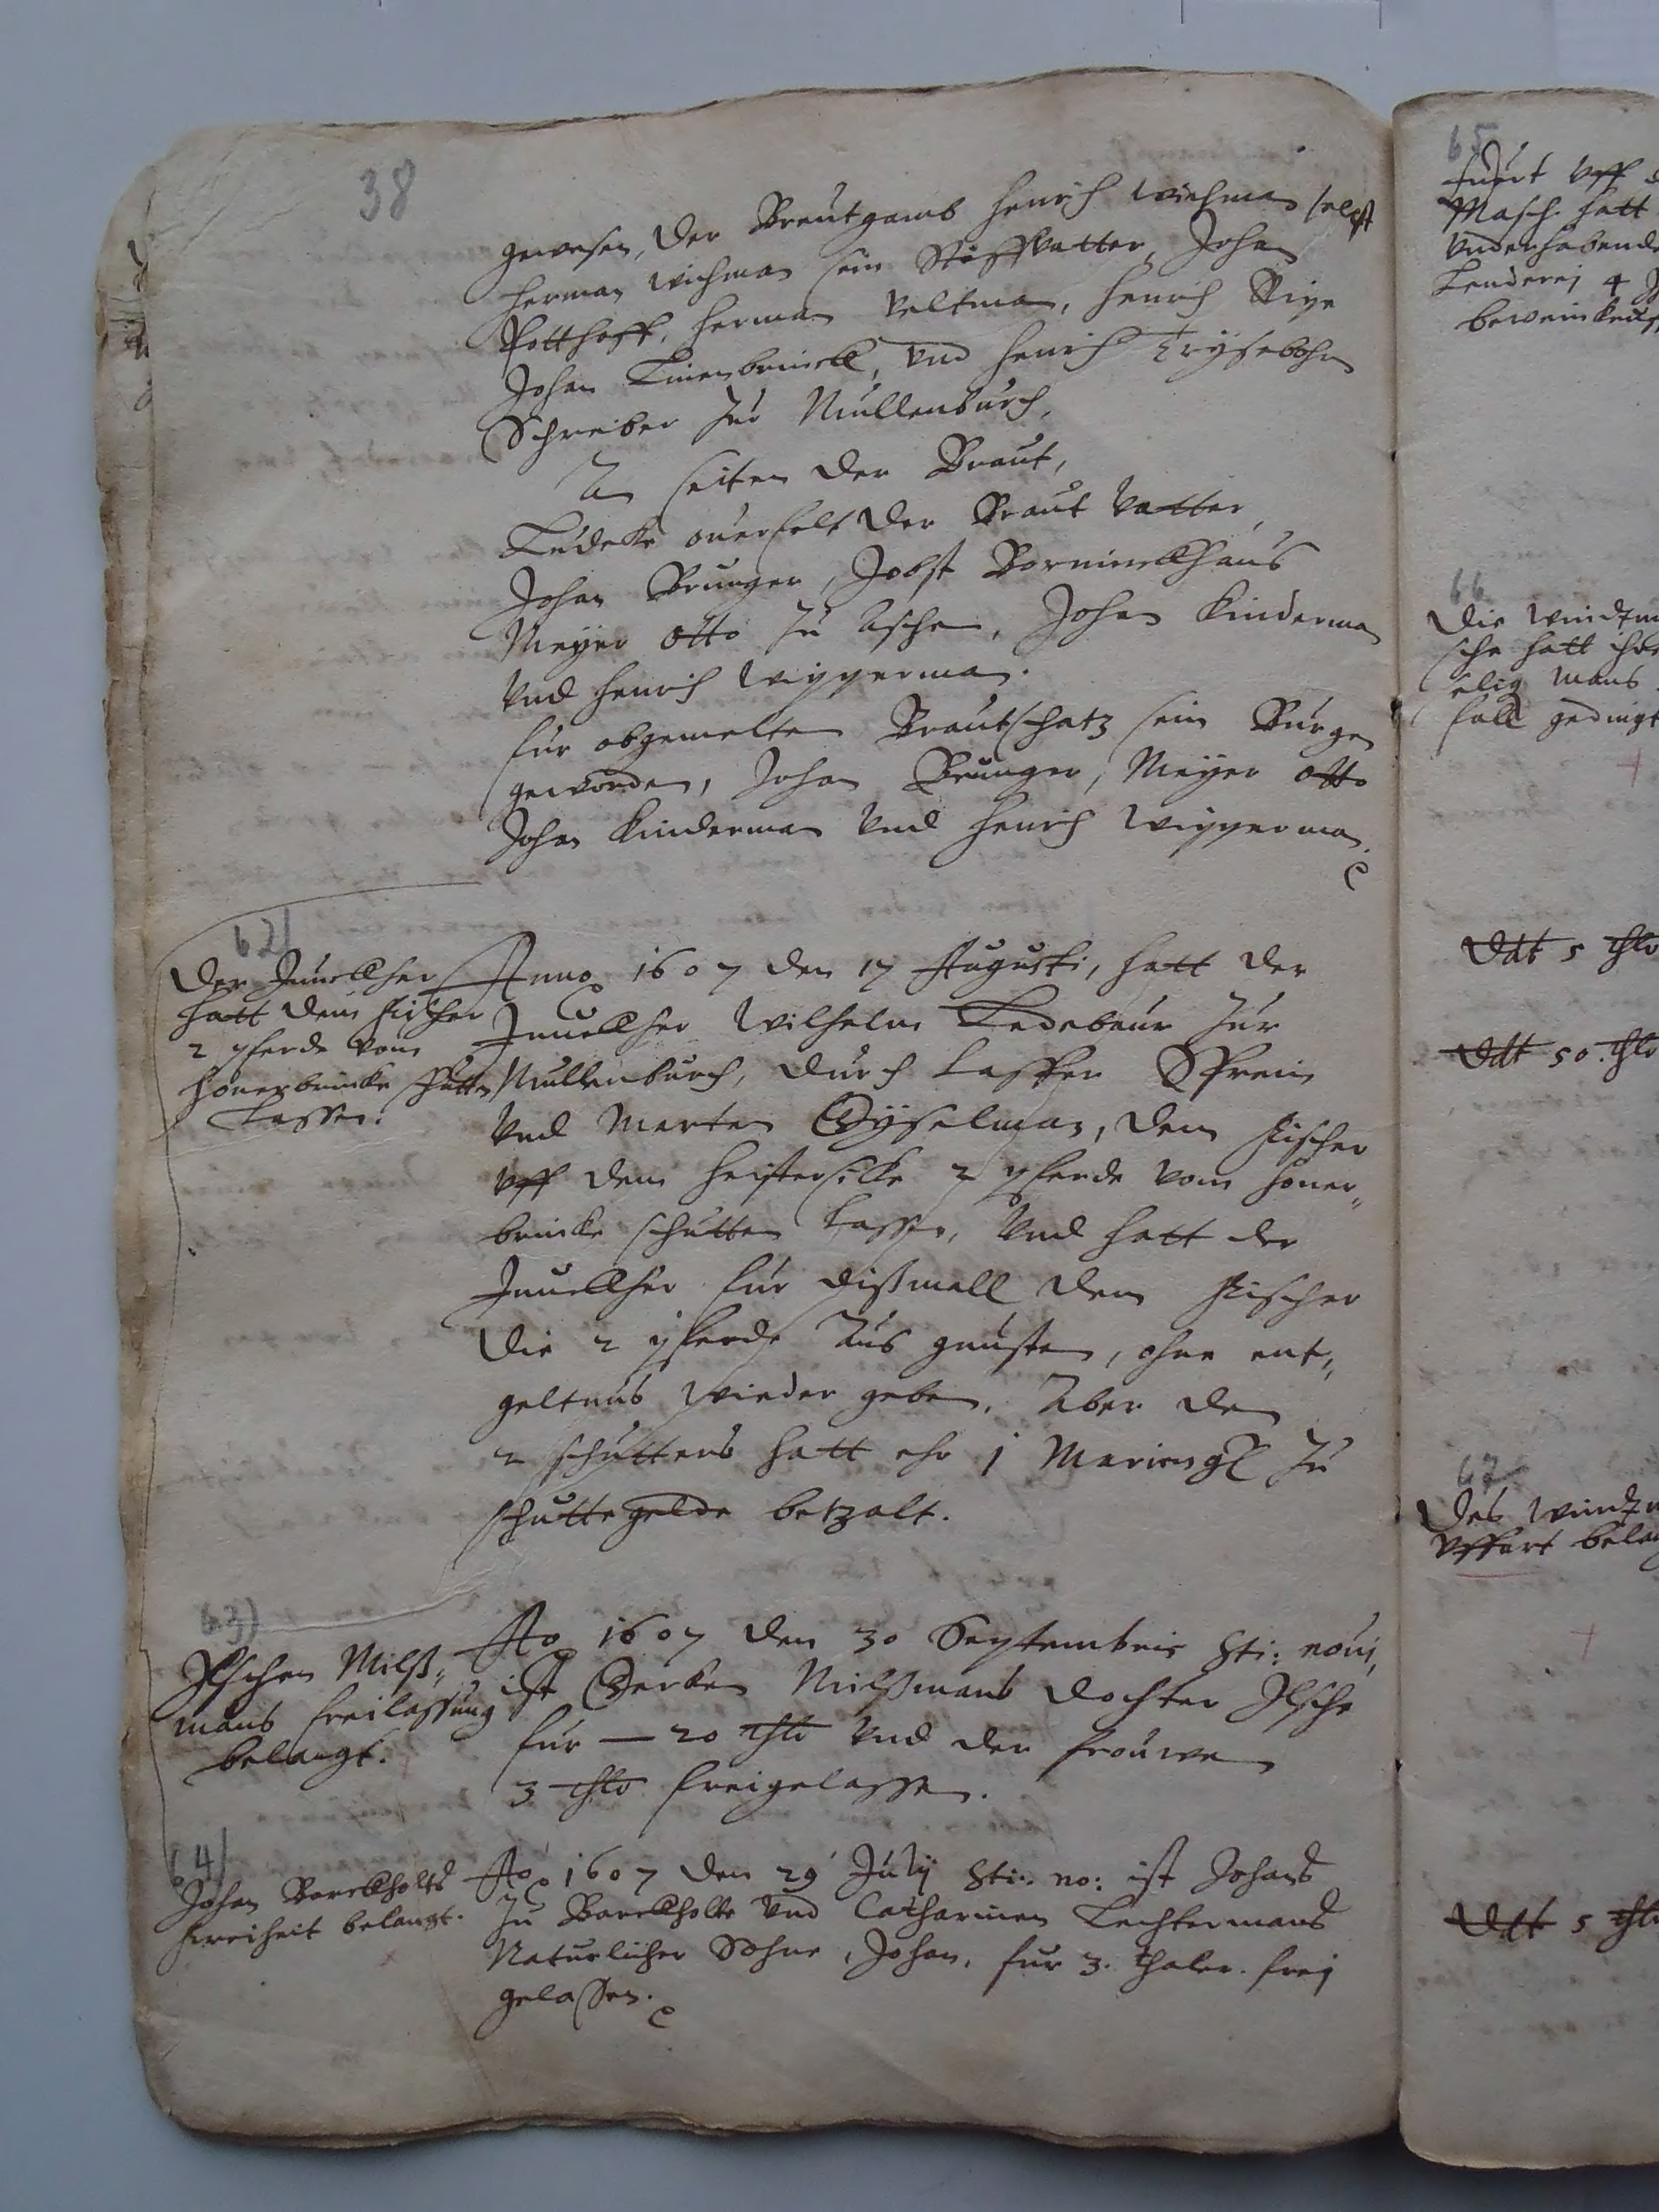 38
gewesen, der Breutgamb Henrich Wichman selbst
Herman Wichman sein Stiffvatter, Johan
Potthoff, Herman Veltman, Henrich
Johan und Henrich
Schreiber zur Mullenburch,
An seiten der Braut,
Ludeke der Braut Vatter,
Johan Brunger, Jobst
Meyer Otto zu Aschen, Johan Kinderman
Und Henrich Wipperman.
fur obgemelten Brautschatz sein Burgen
geworden, Johan Brunger, Meyer Otto
Johan Kinderman Und Henrich Wipperman.
62)
Der Junckher
hatt dem Fischer
2 pferde vom
Honerbrincke schutten
Lassen.
Anno 1607 den 17 Augusti, hatt der
Junckher Wilhelm Ledebaur zur
Mullenburch, durch
Und Merten dem Fischer
Uff dem 2 pferde vom Honer-
brincke schutten Lassen, Und hatt der
Junckher fur dißmall dem Fischer
Die 2 pferde Aus gunsten, ohne ent-
geltnus Wieder geben, Aber den
2 schutters hatt ehr j Mariengl zu
schuttegelde betzalt.
63)
Ilschen Milß-
mans freilassung
belangt.
Ao 1607 den 30 Septembris Sti: noui,
ist Gerken Milßmans dochter Ilsche
fur — 20 thlr Und der frouwen
3 thlr freigelassen.
64)
Johan Barckholts
freiheit belangt.
Ao 1607 den 29 July Sti: no: ist Johans
zu Barckholte Und Catharinen Lechtermans
Naturlicher Sohne, Johan, fur 3. thaler. frej
gelassen.
65
Uff
Masch. hatt
Underhabende
Lenderej 4
66
Die
sche hatt ihr
selig Mans
fall gedingt
Ddt 5 thlr
Ddt 50. thlr
67
Des
Uffart
Ddt 5 thlr